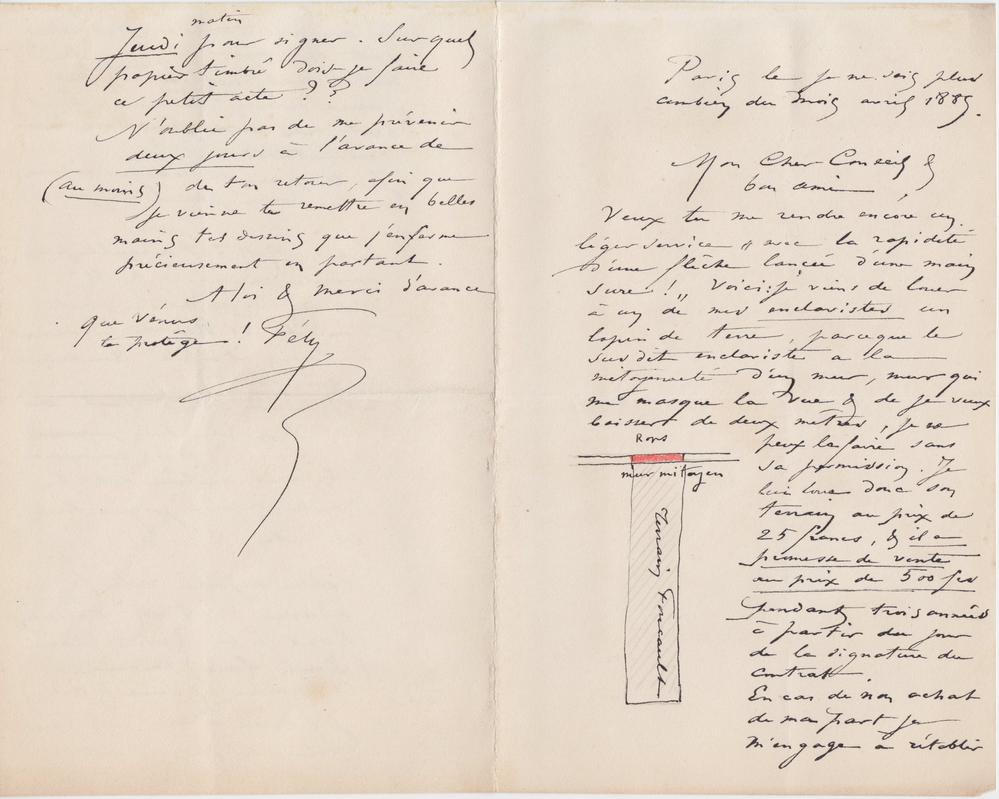 Paris le je ne sais plus
combien du mois avril 1889.
Mon Cher Conseil &
bon ami
Veux tu me rendre encore un
léger service " avec la rapidité
d'une flèche lancée d'une main
sure ! " Voici : je viens de louer
à un de mes enclavistes un
lopin de terre, parceque le
susdit enclaviste a la
mitoyenneté d'un mur, mur qui
me masque la vue & que je veux
baisser de deux mètres, je ne
peux le faire sans
sa permission. Je
lui loue donc son
terrain au prix de
25 francs, & il a
promesse de vente
au prix de 500 frs
pendant trois années
à partir du jour
de la signature du
contrat.
En cas de non achat
de ma part je
m'engage à rétablir
Rops
mur mitoyen
Terrain Foucault
matin
Jeudi pour signer. Sur quel
papier timbré dois-je faire
ce petit acte ? ?
N'oublie pas de me prévenir
deux jours à l'avance de
(au moins) de ton retour, afin que
je vienne te remettre en belles
mains tes dessins que j'enferme
précieusement en partant.
A toi & merci d'avance
que Vénus
te protège ! Fély